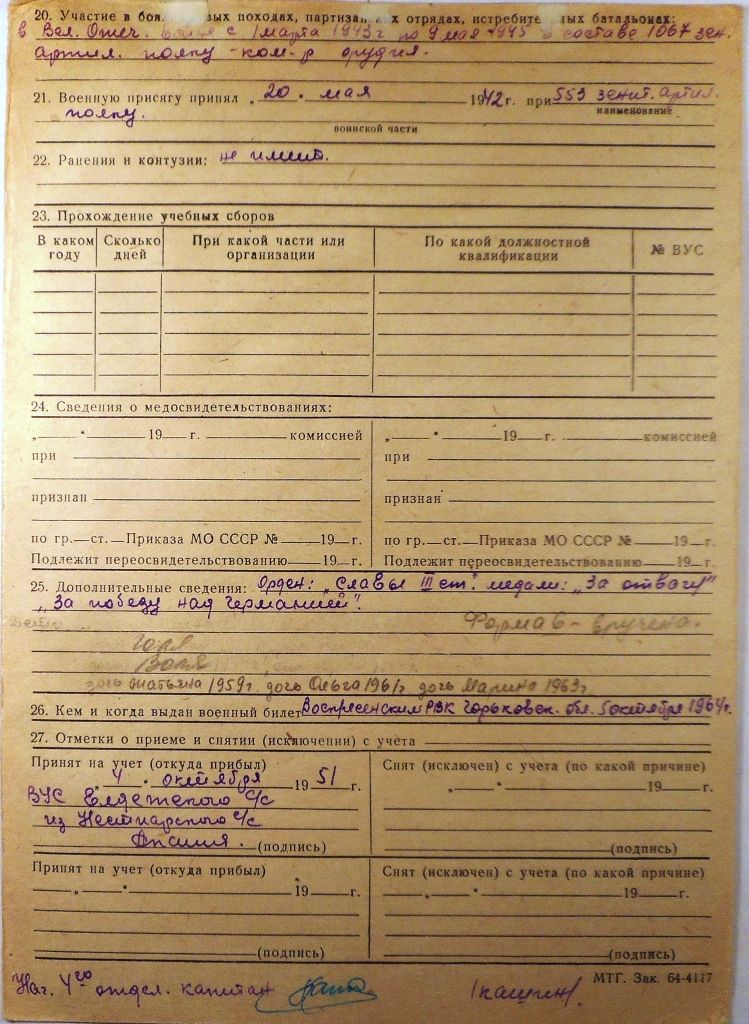 20. Участие в боях, походах, партизанских отрядах, истребительных батальонах:
в Вел. Отеч. войне с 1 марта 1943г по 9 мая 1945 в составе 1067 зен.
артил. полку - ком-р орудия.
21. Военную присягу принял „20. мая 1942 г. при 553 зенит. артил.
наименование
полку.
воинской части
22. Ранения и контузии: не имеит.
23. Прохождение учебных сборов
В каком году Сколько дней При какой части или организации По какой должностной квалификации № ВУС
24. Сведения о медосвидетельствованиях:
„ “ 19 г. комиссией „ “ 19 г. комиссией
при при
признан признан
по гр. ст. Приказа МО СССР № 19 г. по гр. ст. Приказа МО СССР № 19 г.
Подлежит переосвидетельствованию 19 г. Подлежит переосвидетельствованию 19 г.
25. Дополнительные сведения: Орден: „Славы III ст." медали: „За отвагу"
„За победу над Германией".
Форма в - вручена.
дочь Татьяна 1959г. дочь Ольга 1961г дочь Марина 1963г.
26. Кем и когда выдан военный билет Воспресенским РВК Горьковск. обл. 5 октября 1964г.
27. Отметки о приеме и снятии (исключении) с учета
Принят на учет (откуда прибыл) Снят (исключен) с учета (по какой причине)
„ 4 " октября 1951 г. „ “ 19 г.
ВУС Елдежского с/с
из Нестиарского с/с
(подпись) (подпись)
Принят на учет (откуда прибыл) Снят (исключен) с учета (по какой причине)
„ “ 19 г. „ “ 19 г.
(подпись) (подпись)
МТГ. Зак. 64-4117
Нач. 4го отдел. капитан (Кашин).